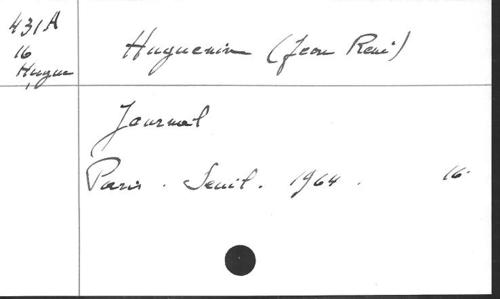 431A
16
Hugue
Huguenin (Jean René)
Journal
Paris . Seuil . 1964 . 16.